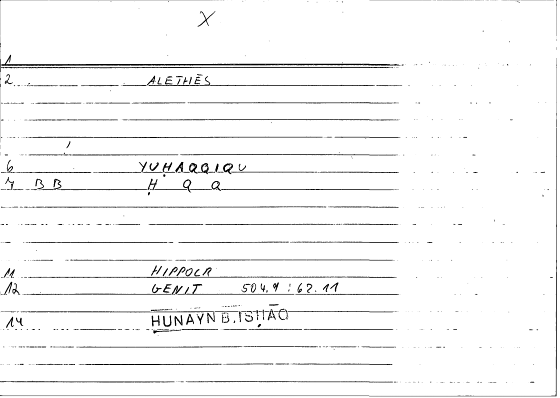 X
1
2 ALETHĒS
6 YUḤAQQIQU
7 BB Ḥ Q Q
11 HIPPOCR
12 GENIT 504.9 : 62.11
14 ḤUNAYN B.ISḤĀQ